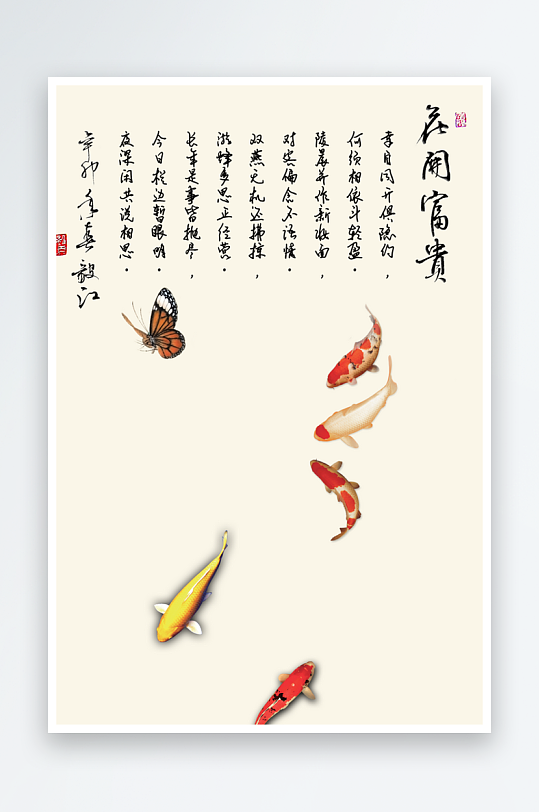 花開富貴
幸自同开俱隐约，
何须相依斗轻盈。
陵晨并作新妆面，
对客偏含不语情。
双燕无机还拂掠，
游蜂多思正经营。
长年是事皆抛尽，
今日栏边暂眼明。
夜深闲共说相思。
辛卯年春毅江